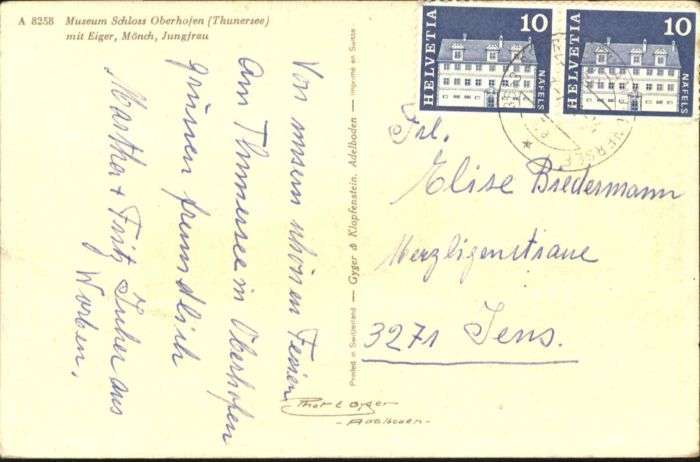 A 8258 Museum Schloss Oberhofen (Thunersee)
mit Eiger, Mönch, Jungfrau
HELVETIA 10 NÄFELS
HELVETIA 10 NÄFELS
Von unsern schönen Ferien
am Thunersee in Oberhofen
grüssen freundlich
Martha + Fritz aus
Worben.
Printed in Switzerland — Gyger & Klopfenstein, Adelboden — Imprimé en Suisse
Frl.
Elise Biedermann
Merzligenstrasse
3271 Jens.
Phot E Gyger
- Adelboden -